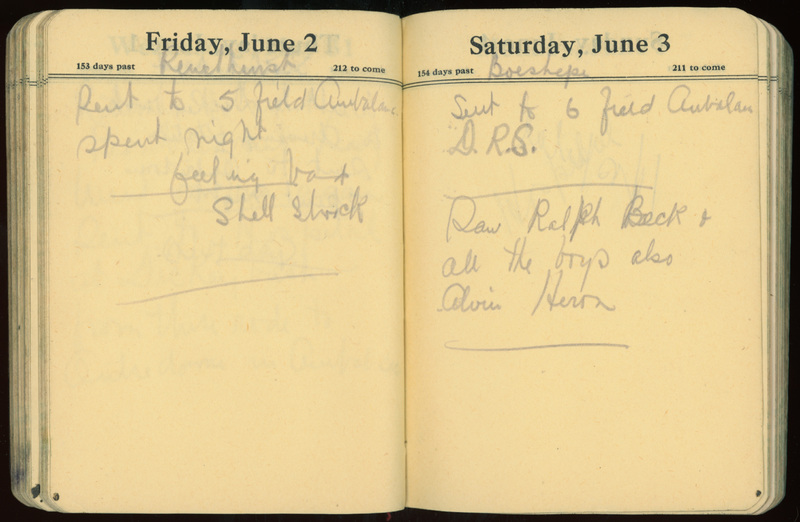 Friday, June 2
153 days past
212 to come
Sent to 5 field Ambulanc
spent night
feeling bad
Shell Shock
Saturday, June 3
154 days past
Boeshepe
211 to come
Sent to 6 field Ambulan
D.R.S.
Saw Ralph Back &
all the boys also
Alvin Heron